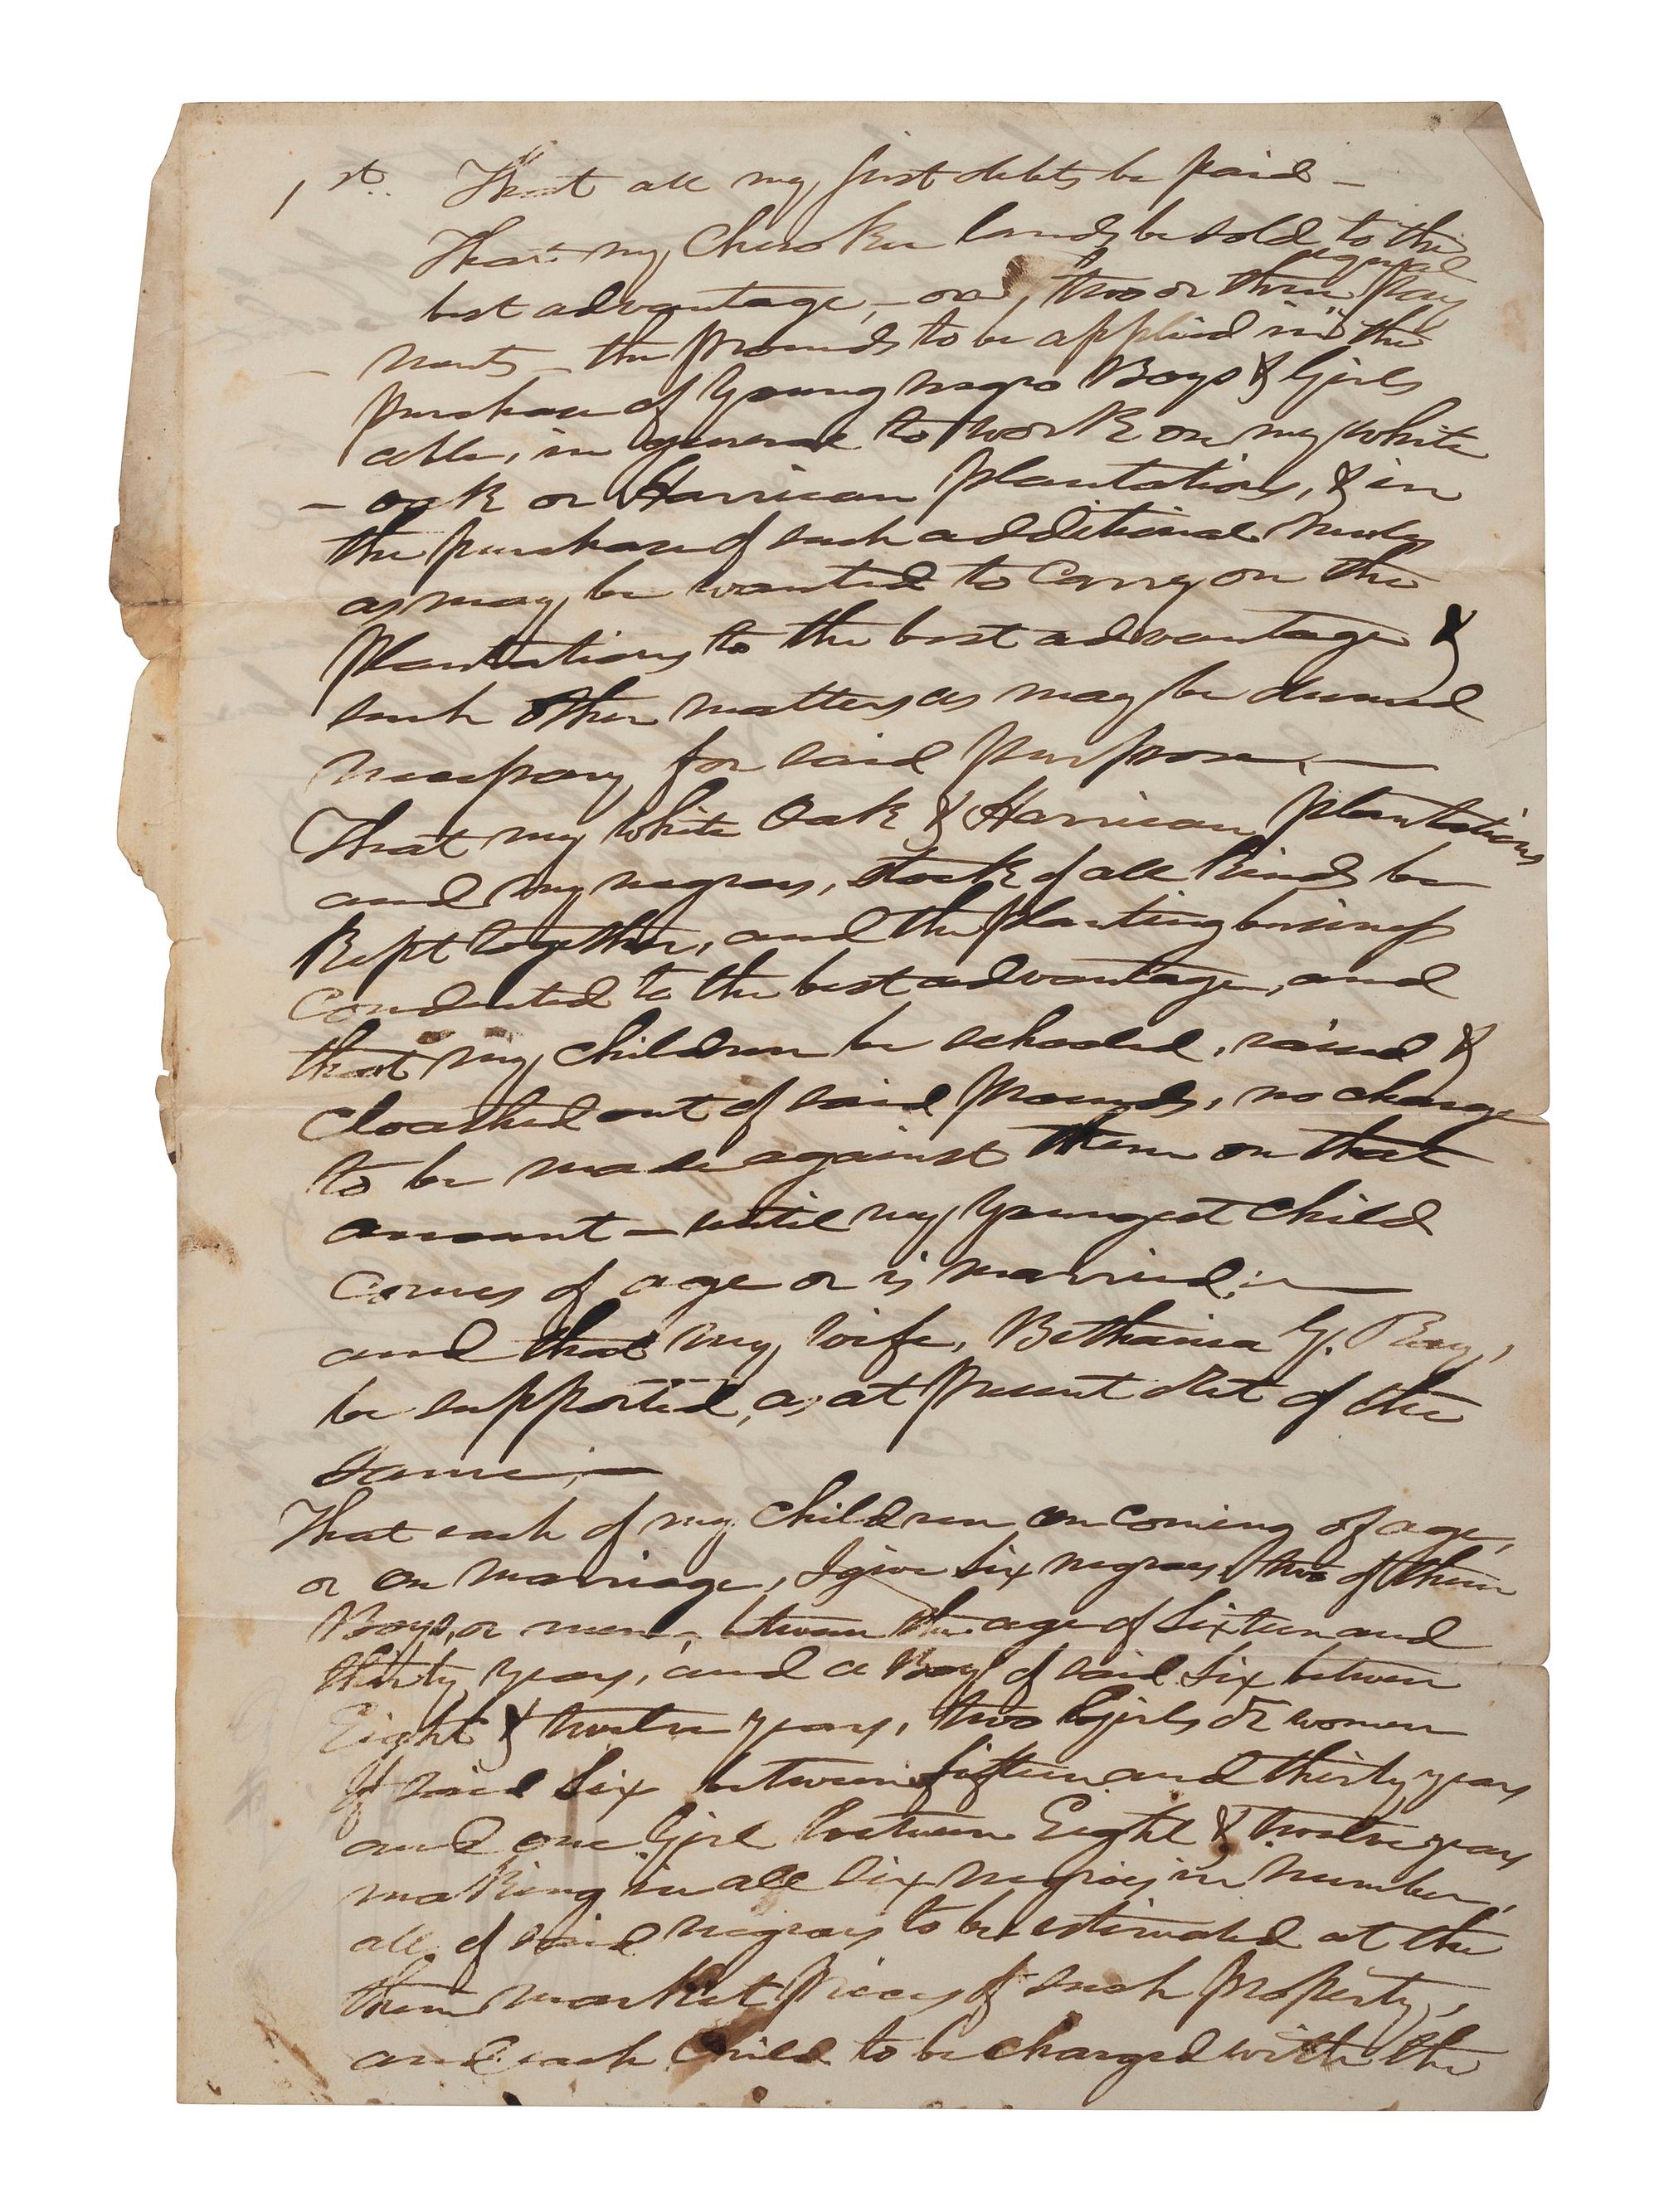 1st. That all my just debts be paid —
That my Cherokee lands be sold to the
best advantage, — one, two or three equal pay
— ments — the proceeds to be applied in the
purchase of young negro Boys & Girls
able, in general to work on my white
— oak or Harrican plantations, & in
the purchase of such additional mules
as may be wanted to carry on the
plantations to the best advantage &
such other matters as may be deemed
necessary for said purpose, —
That my white Oak & Harrican plantations
and my negroes, stock of all kinds be
Kept together, and the planting business
conducted to the best advantage, and
that my children be schooled, raised &
cloathed out of said proceeds, no charge
to be made against them on that
amount — until my youngest child
comes of age or is married; —
and that my wife, Bethania G. Pray,
be supported, as at present out of the
same; —
That each of my children on coming of age,
or on marriage, I give six negroes, two of them
Boys, or men, between the age of sixteen and
thirty years, and a Boy of said six between
Eight & twelve years, two Girls or women
of said six between fifteen and thirty years
and one Girl between Eight & twelve years
making in all six negroes in number,
all of said negroes to be estimated at the
then market prices of such property,
and each child to be charged with the